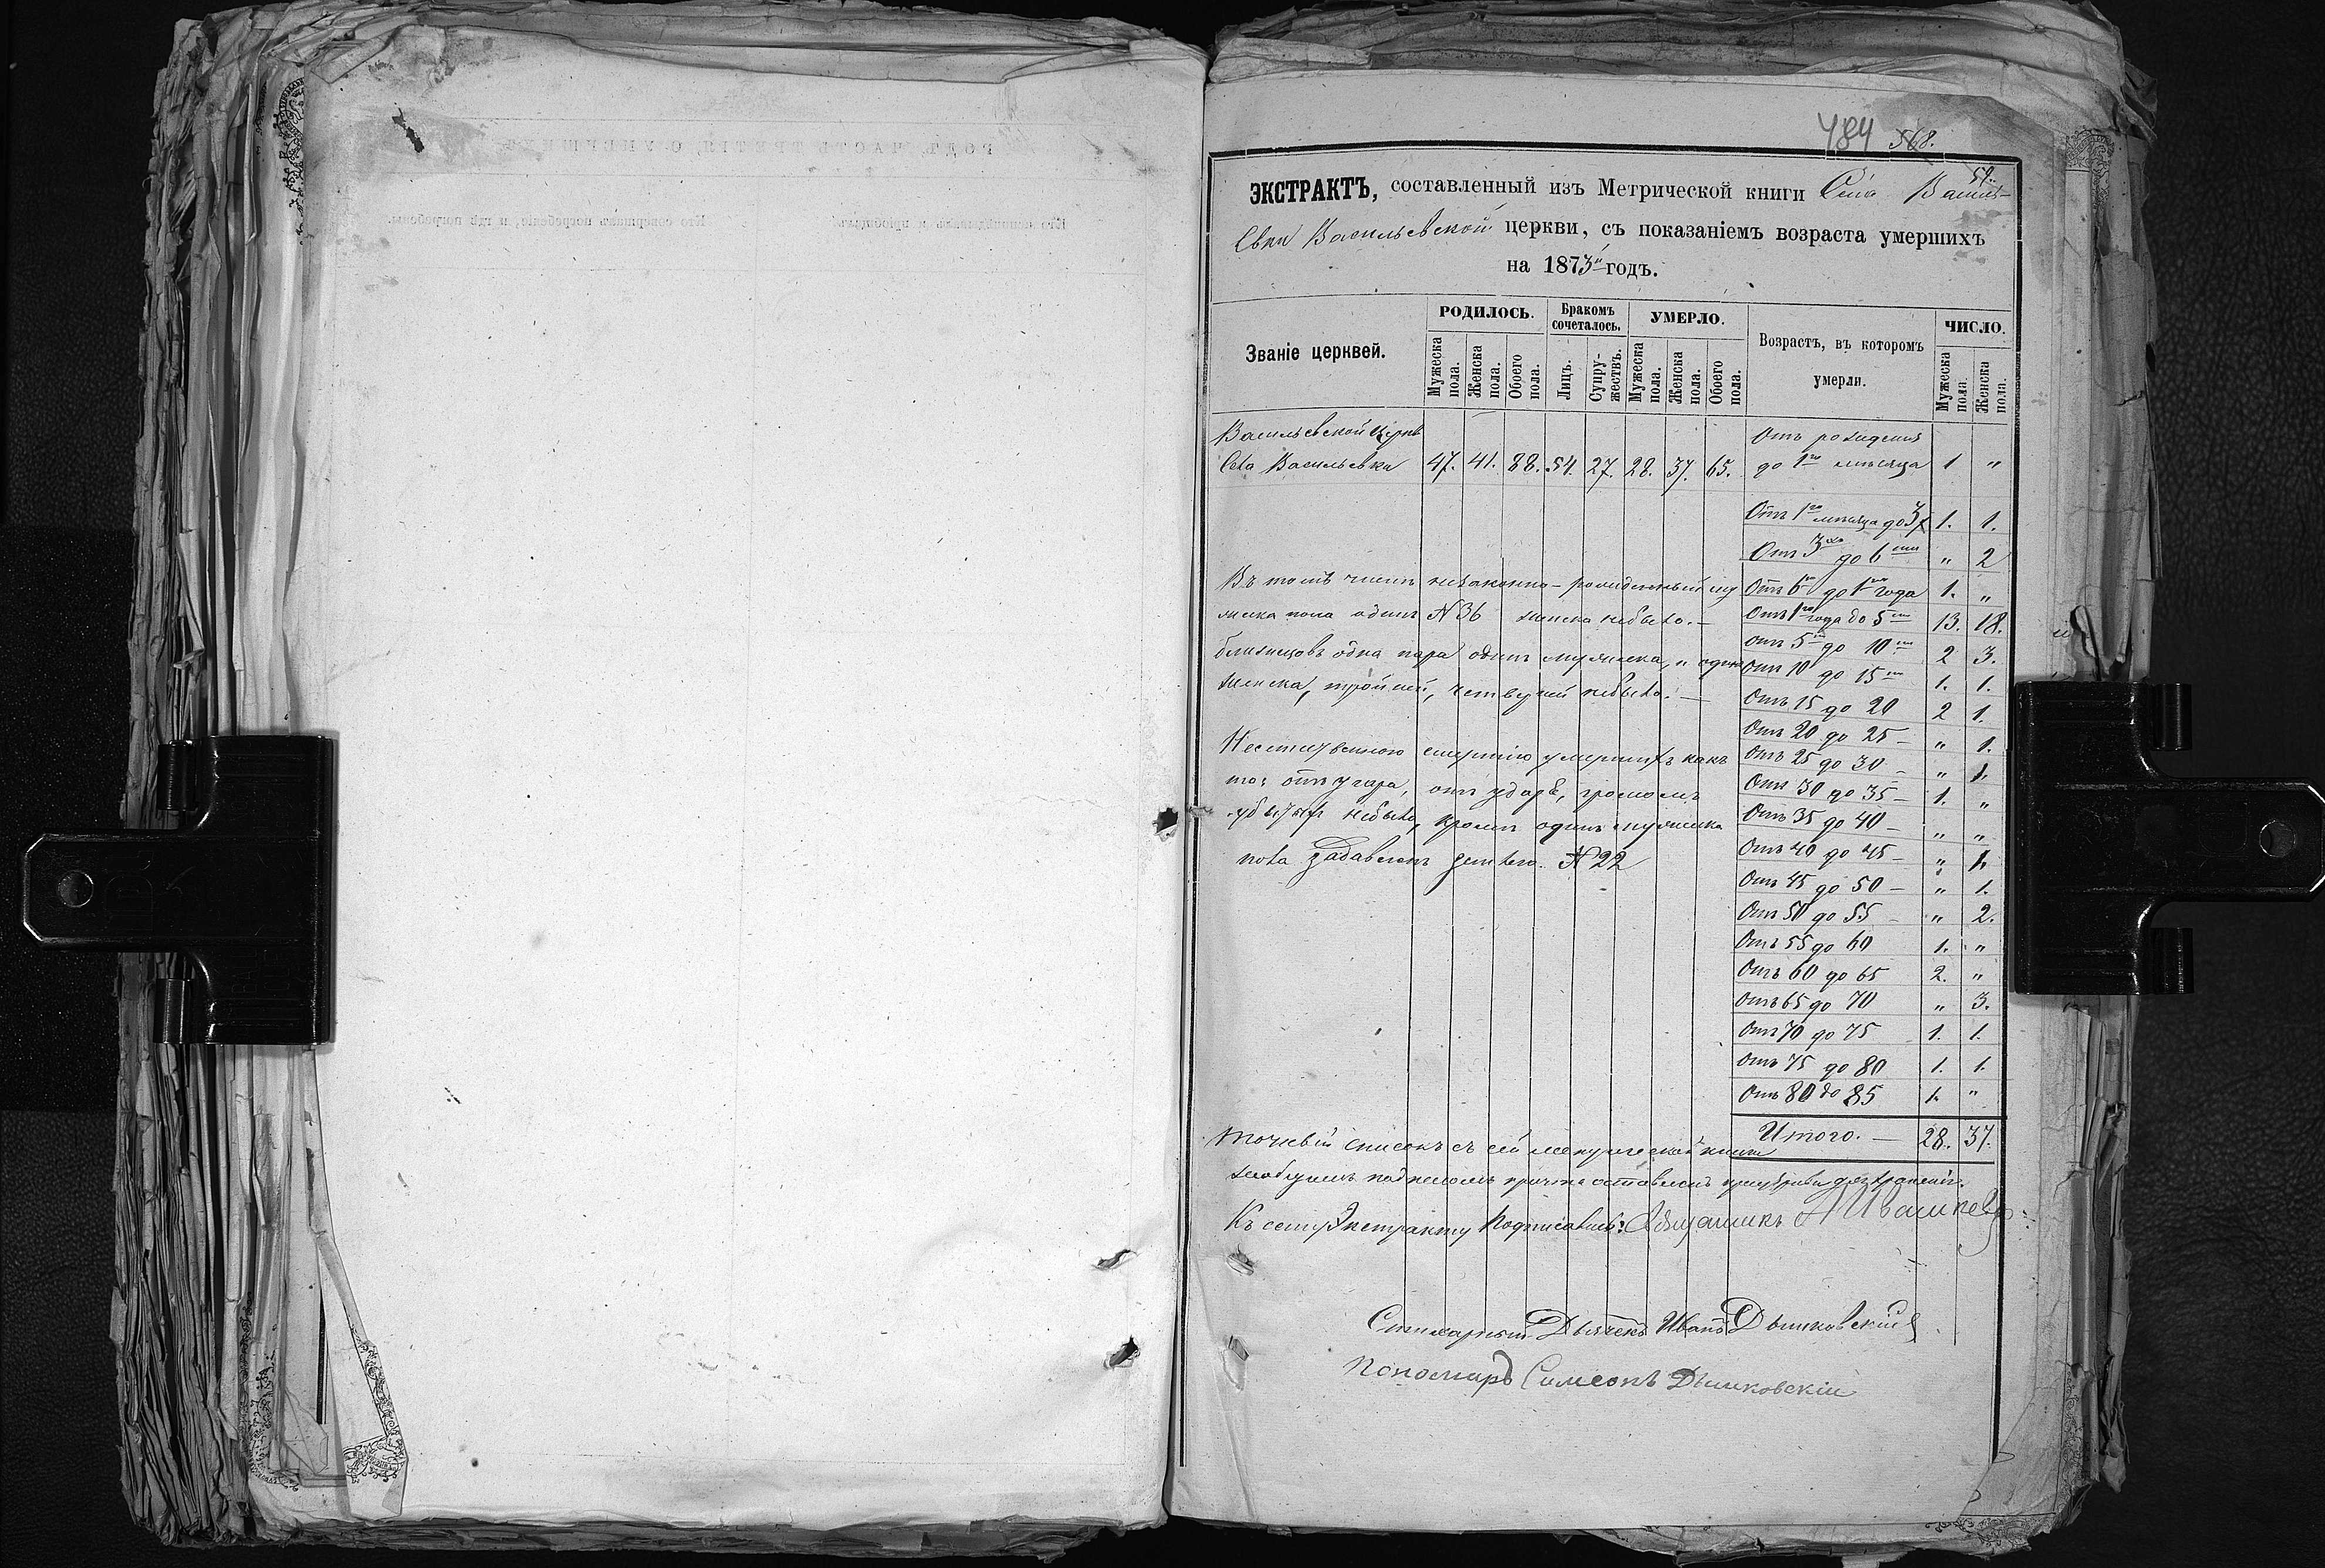 484 568.
57.
ЭКСТРАКТЪ, составленный изъ Метрической книги Села Василь-
евки Васильевской церкви, съ показаніемъ возраста умершихъ
на 1873й годъ.
Званіе церквей.
РОДИЛОСЬ.
Бракомъ сочеталось.
УМЕРЛО.
Возрастъ, въ которомъ умерли.
ЧИСЛО.
Мужеска пола.
Женска пола.
Обоего пола.
Лицъ.
Супру-жествъ.
Мужеска пола.
Женска пола.
Обоего пола.
Мужеска пола.
Женска пола.
Васильевской Церкв
Села Васильевка 47. 41. 88. 54. 27. 28. 37. 65.
Отъ рожденія
до 1го мѣсяца 1 "
Отъ 1го мѣсяца до 3х 1. 1.
Отъ 3хъ до 6ти " 2
Отъ 6ти до 1го года 1. "
Отъ 1го года до 5ти 13. 18.
Отъ 5ти до 10ти 2 3.
Отъ 10 до 15ти 1. 1.
Отъ 15 до 20 2 1.
Отъ 20 до 25 – " 1.
Отъ 25 до 30 – " 1.
Отъ 30 до 35 – 1. "
Отъ 35 до 40 – " "
Отъ 40 до 45 – " 1.
Отъ 45 до 50 – " 1.
Отъ 50 до 55 – " 2.
Отъ 55 до 60 1. "
Отъ 60 до 65 2. "
Отъ 65 до 70 " 3.
Отъ 70 до 75 1. 1.
Отъ 75 до 80 1. 1.
Отъ 80 до 85 1. "
Итого. – 28. 37.
Въ томъ числѣ незаконно-рожденный му
жеска пола одинъ N 36 женска небыло. –
близнецовъ одна пара одинъ мужеска, и одна
женска, тройней, четверней небыло. –
Неестественною смертію умершихъ какъ
то: отъ угара, отъ удара, громомъ
убитыхъ небыло, кромѣ одинъ мужеска
пола задавленъ землею. N 22
Точный списокъ съ сей метрической книги
подписомъ причта оставленъ при церкви для храненія.
Къ сему Экстракту Подписались: Священникъ А Ивашкевъ
Стихарный Дьячекъ Иванъ Дышковскій
Пономарь Симеонъ Дышковскій
РОДЪ, ЧАСТЬ ТРЕТІЯ, О УМЕРШИХЪ
Кто исповѣдывалъ и пріобщалъ.
Кто совершалъ погребеніе, и гдѣ погребены.